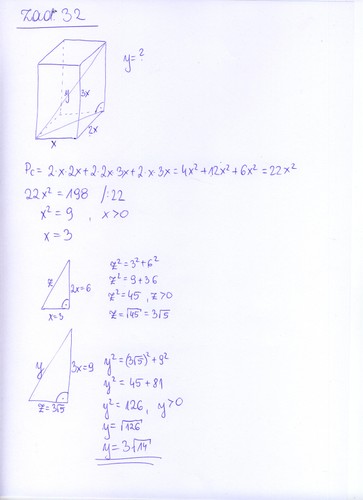 Zad. 32
y = ?
y
3x
2x
x
Pc = 2·x·2x + 2·2x·3x + 2·x·3x = 4x² + 12x² + 6x² = 22x²
22x² = 198 /:22
x² = 9 , x>0
x = 3
z
2x=6
x=3
z² = 3² + 6²
z² = 9 + 36
z² = 45 , z>0
z = √45 = 3√5
y
3x=9
z = 3√5
y² = (3√5)² + 9²
y² = 45 + 81
y² = 126 , y>0
y = √126
y = 3√14